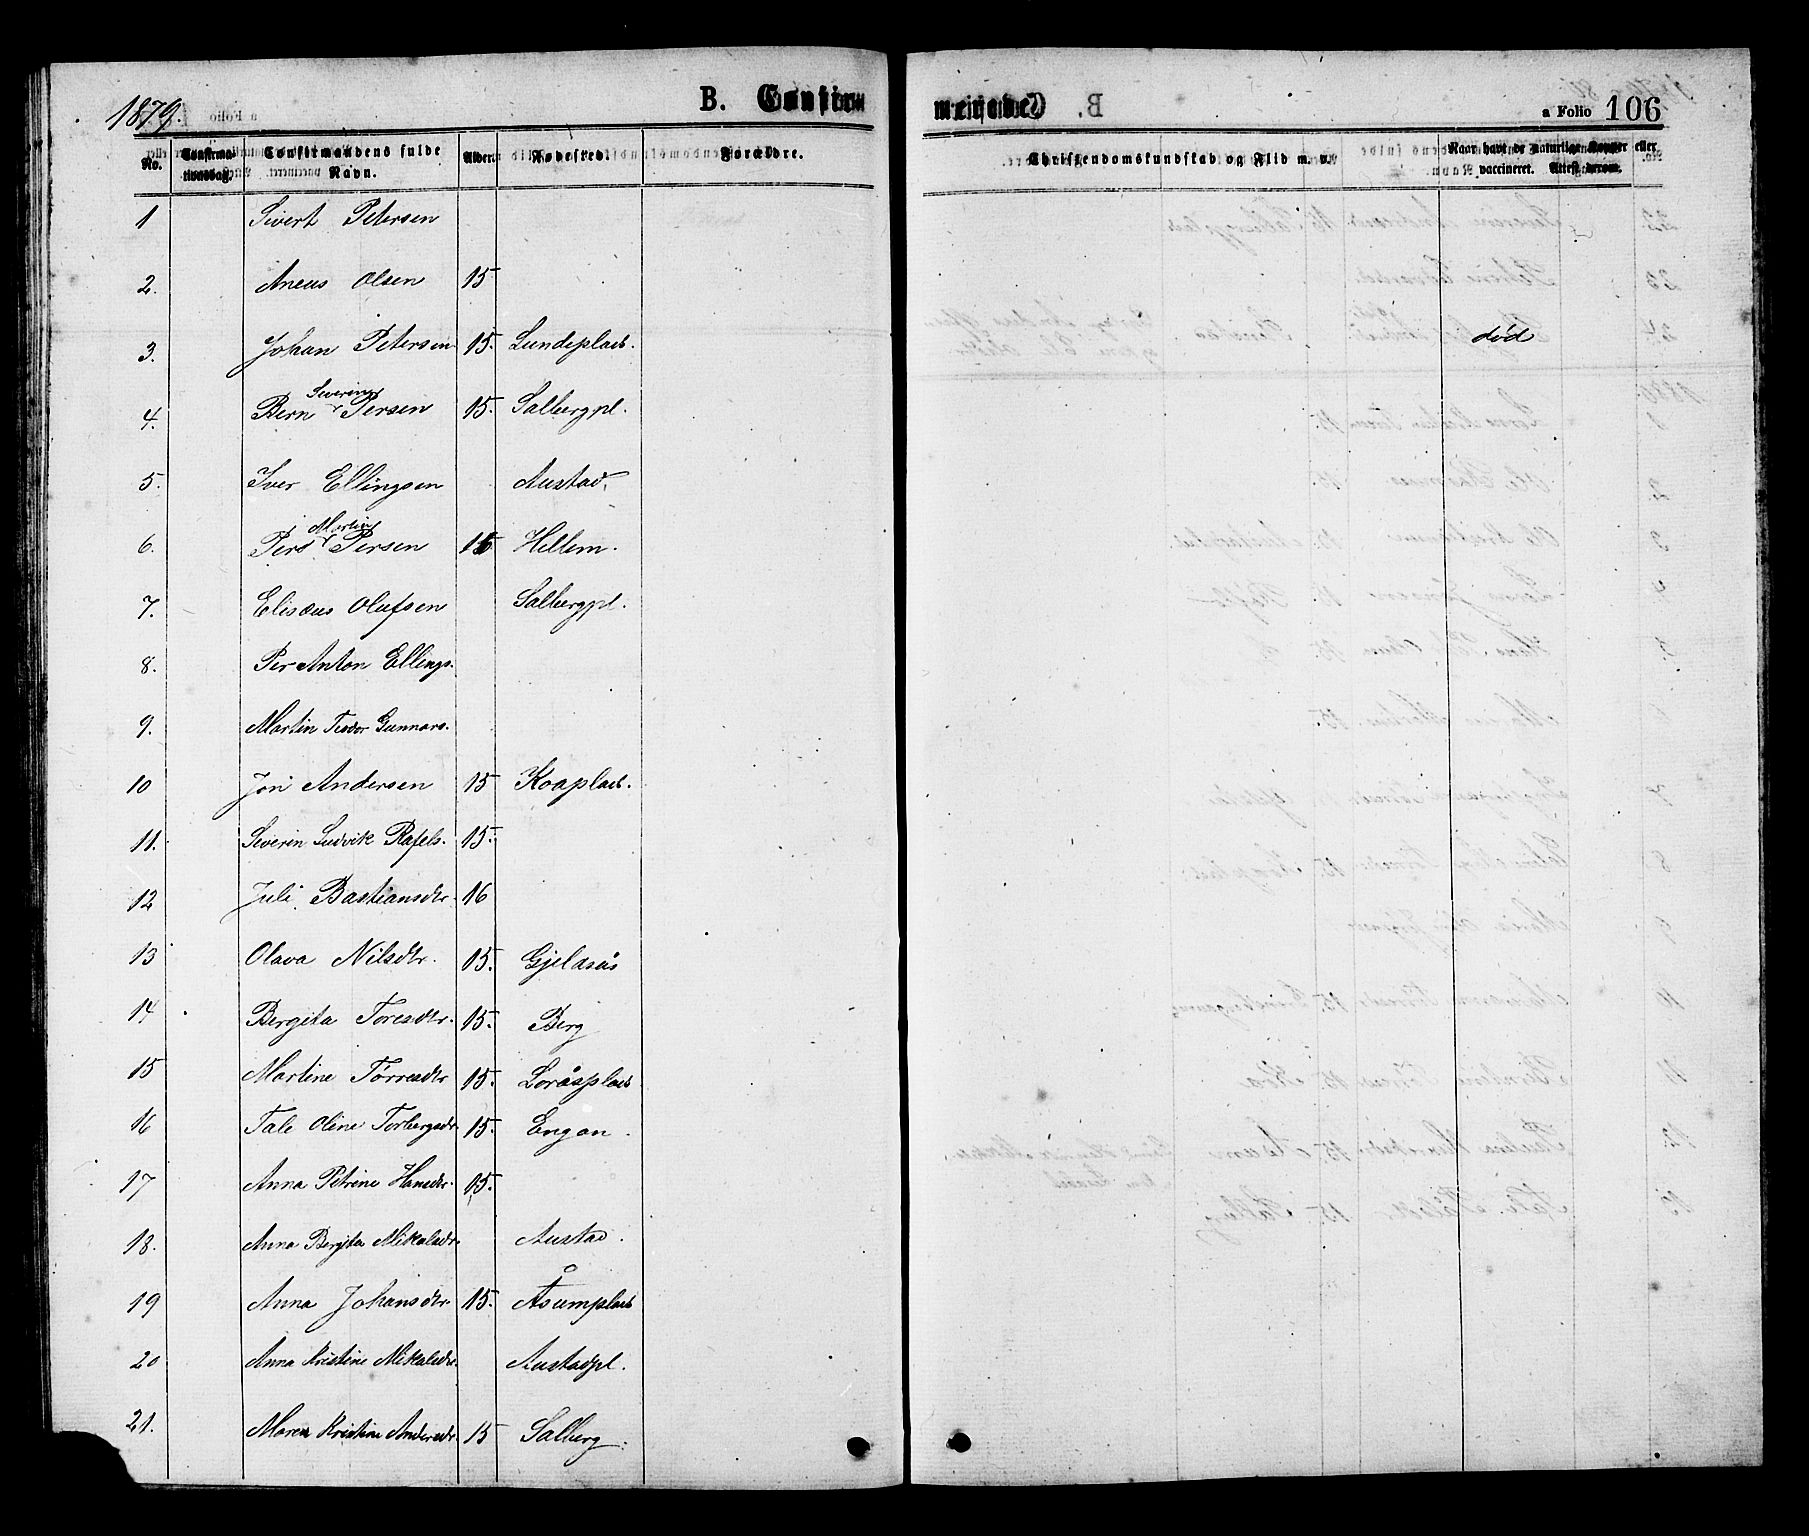 1879.
B. Confir-
merede.
a Folio 106
No. Confirma-tionsdag. Confirmandens fulde Navn. Alder. Fødested. Forældre. Christendomskundskab og Flid m. v. Naar havt de naturlige Kopper eller vaccineret. Attest derom.
1 Sivert Petersen
2. Aneus Olsen 15
3. Johan Petersen 15. Lundeplads. død
4. Bern Severin Persen 15. Salbergpl.
5. Iver Ellingsen Austad.
6. Pers Martin Persen 15 Hellem.
7. Elisæus Olufsen Salbergpl.
8. Per Anton Ellings.
9. Martin Teodor Gunnars.
10 Jon Andersen 15 Koaplads.
11. Severin Ludvik Rafels. 15.
12 Juli Bastiansdtr. 16
13 Olava Nilsdtr. 15. Gjeldsås
14 Bergita Toresdtr. 15. Berg
15 Martine Tørresdtr 15. Loråsplads
16 Tale Oline Torbergsdtr. 15. Engan.
17 Anna Petrine Hansdtr. 15.
18. Anna Bergita Mikalsdtr. Austad.
19 Anna Johansdtr. 15. Åsumplads
20 Anna Kristine Mikalsdtr. Austadpl.
21. Maren Kristine Andersdtr. 15 Salberg.